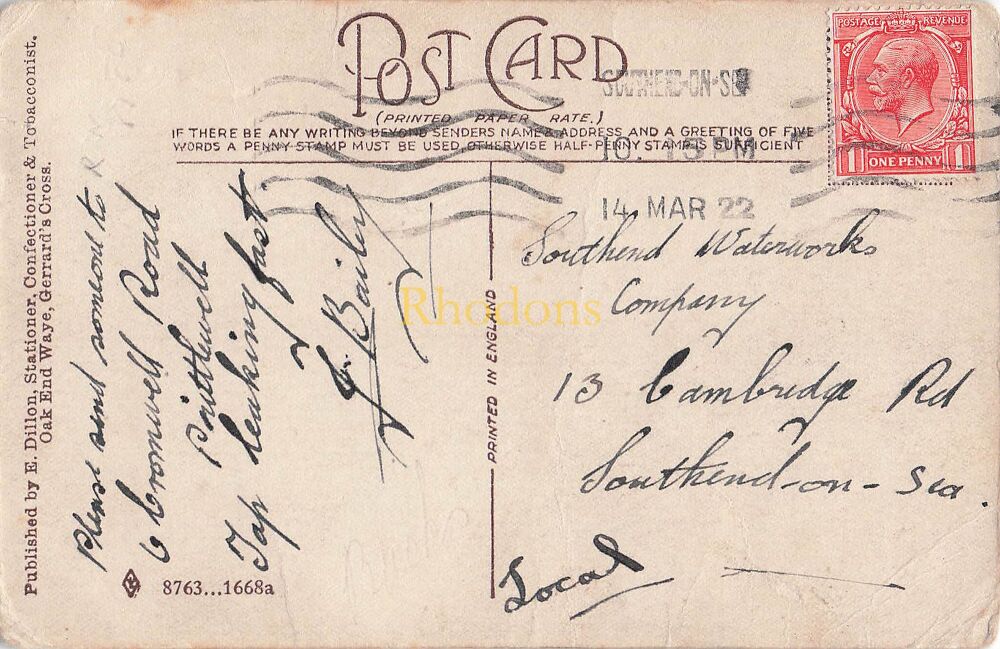 POST CARD
(PRINTED PAPER RATE.)
IF THERE BE ANY WRITING BEYOND SENDERS NAME & ADDRESS AND A GREETING OF FIVE
WORDS A PENNY STAMP MUST BE USED OTHERWISE HALF-PENNY STAMP IS SUFFICIENT
POSTAGE REVENUE
1 ONE PENNY 1
SOUTHEND-ON-SEA
10. 15 PM
14 MAR 22
Published by E. Dillon, Stationer, Confectioner & Tobacconist.
Oak End Waye, Gerrard's Cross.
Please send someone to
6 Cromwell Road
Prittlewell
Tap leaking fast
Bailey
8763...1668a
PRINTED IN ENGLAND
Southend Waterworks
Company
13 Cambridge Rd
Southend-on-Sea.
Local
Rhodons